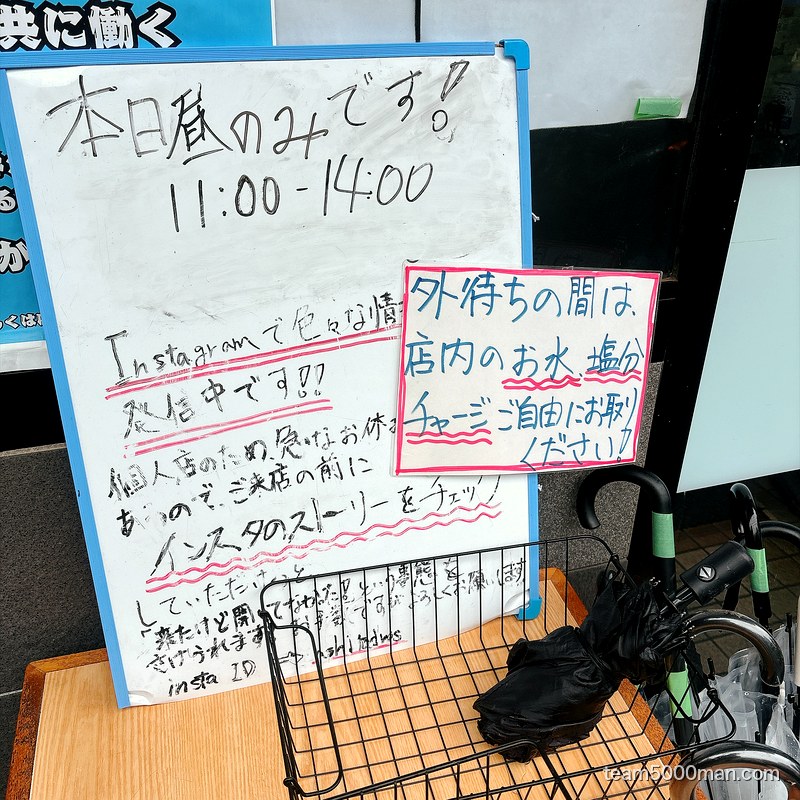 共に働く
本日昼のみです!
11:00-14:00
Instagramで色々な情
発信中です!!
個人店のため、急なお休
あるので、ご来店の前に
インスタのストーリーをチェック
していただけると
「来たけど開いてなかった」という事態を
さけられます
よろしくお願います
insta ID
外待ちの間は、
店内のお水、塩分
チャージご自由にお取り
ください!
team5000man.com